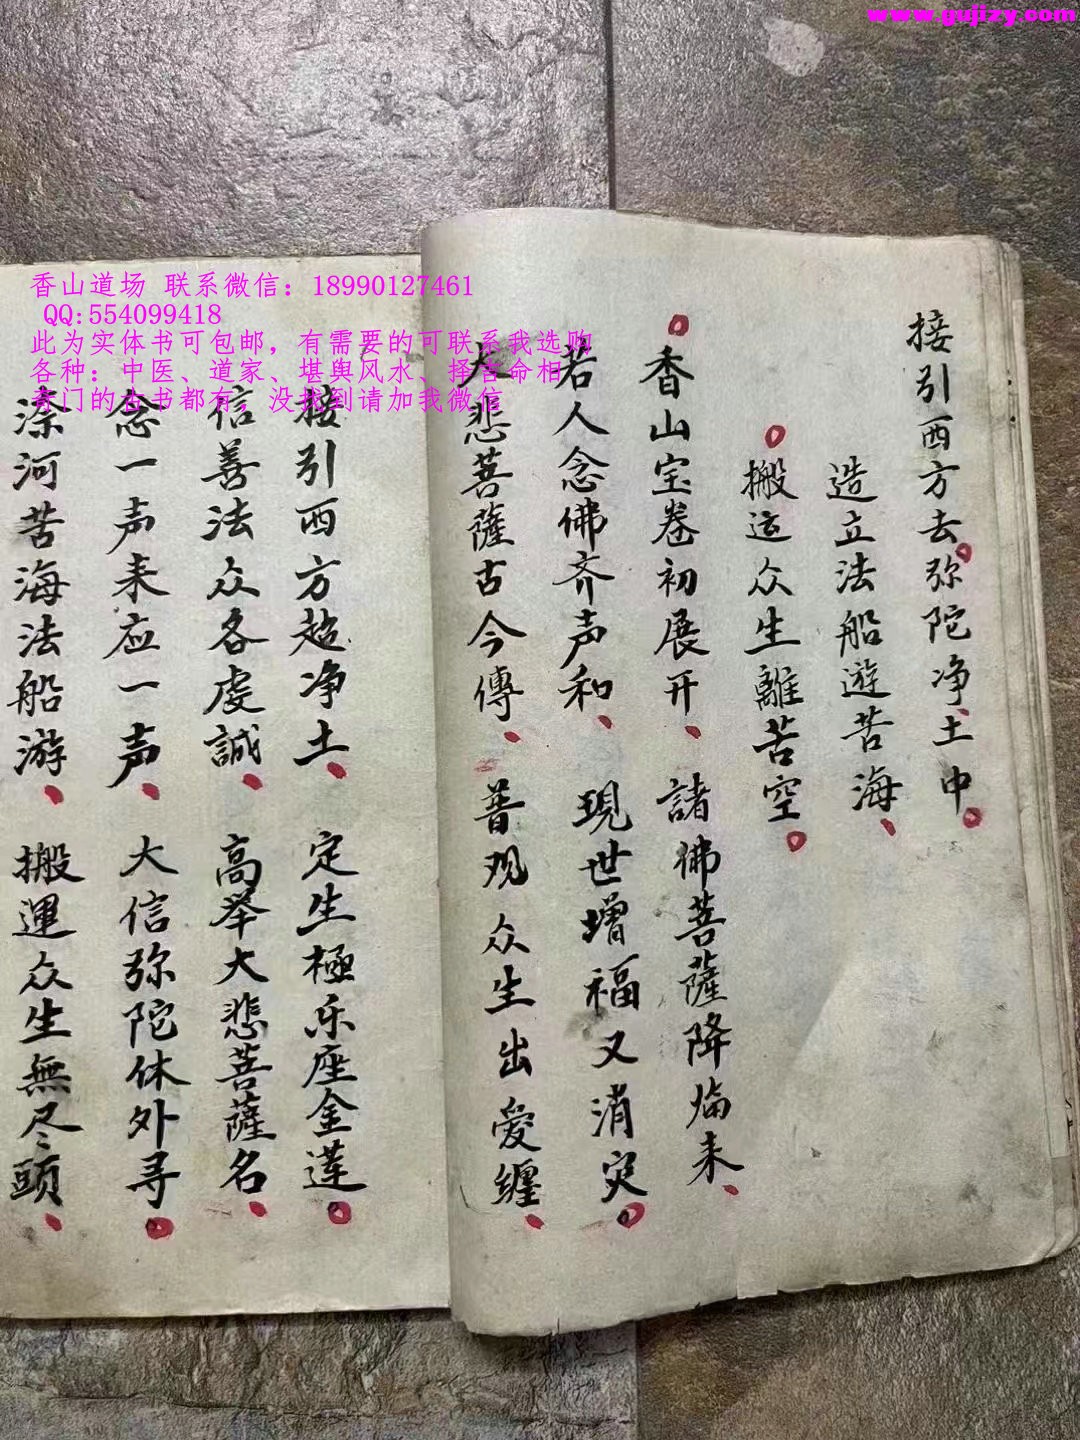 www.gujizy.com
香山道场 联系微信：18990127461
QQ:554099418
此为实体书可包邮，有需要的可联系我选购
各种：中医、道家、堪舆风水、择吉命相
奇门的古书都有，没找到请加我微信
接引西方去。弥陀净土中。
造立法船遊苦海、
搬运众生離苦空。
香山宝卷初展开、諸佛菩薩降临来、
若人念佛齐声和、現世增福又消灾。
大悲菩薩古今傳、普观众生出爱缠、
接引西方超净土、定生極乐座金莲。
信善法众各虔誠、高举大悲菩薩名、
念一声来应一声、大信弥陀休外寻。
深河苦海法船游、搬運众生無尽頭、